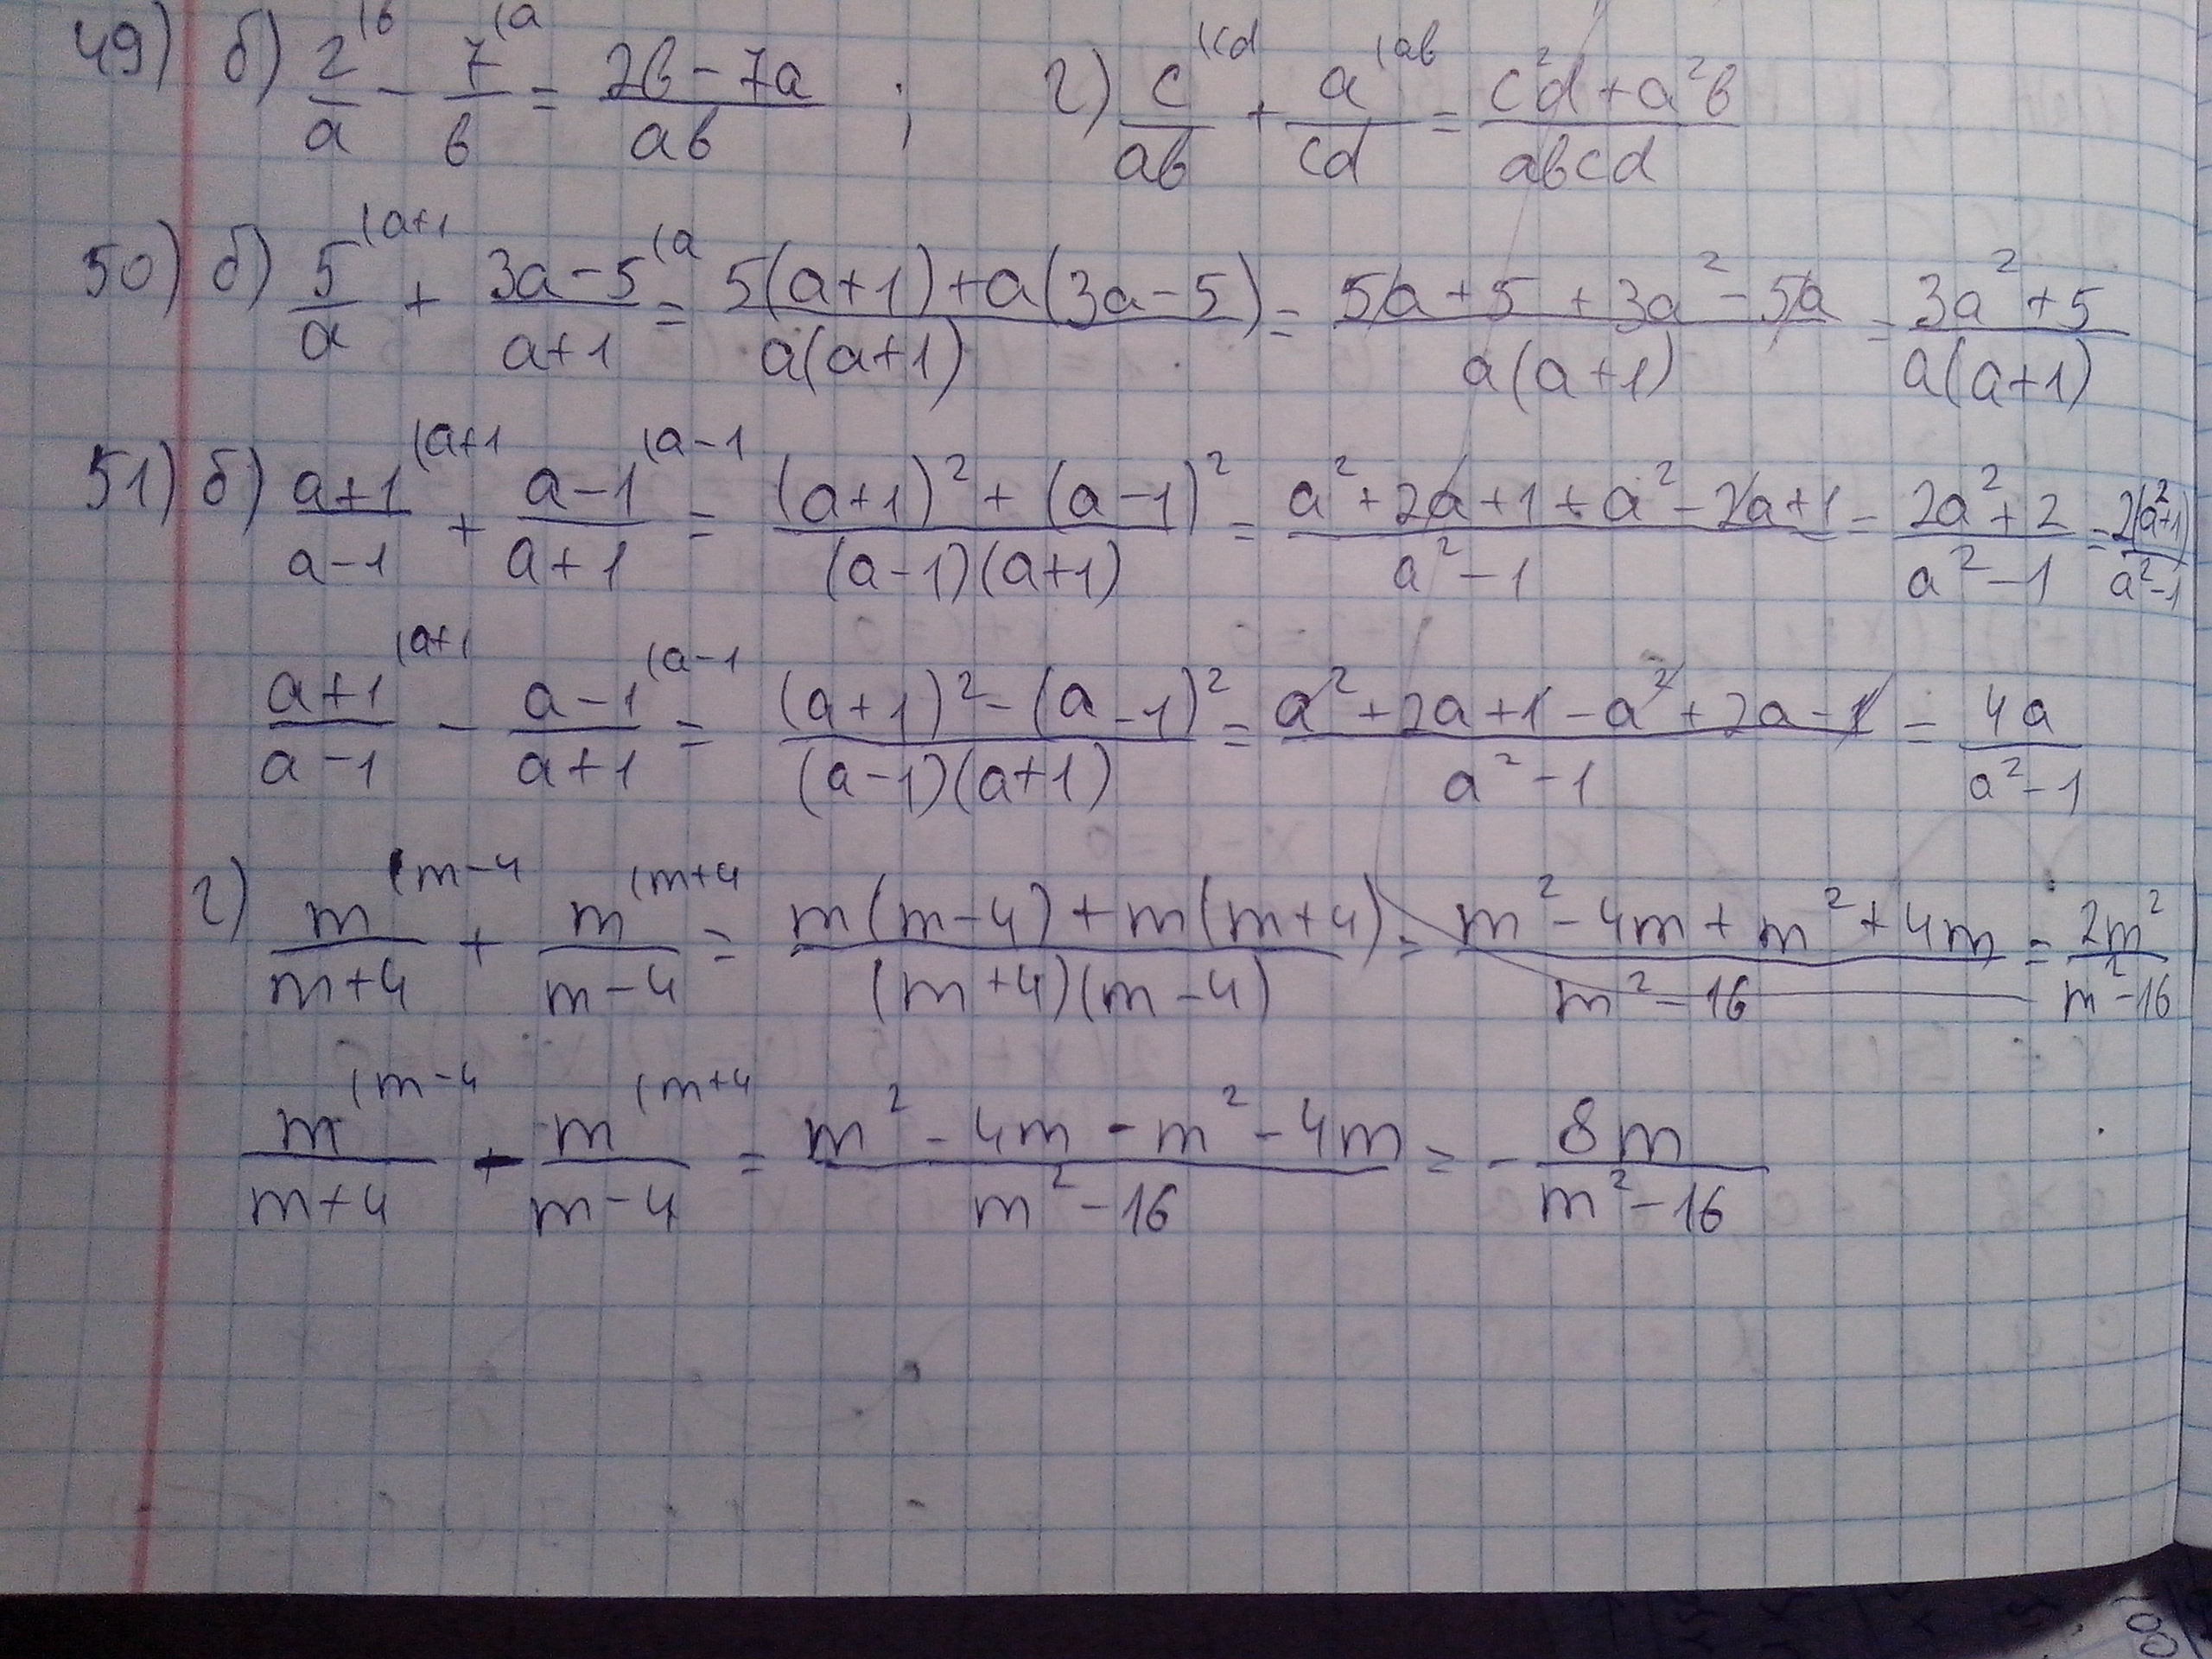 49) б) 2/a (в - 7/в (a = (2в - 7a)/(aв) ; г) c/(aв) (cd + a/(cd) (aв = (c²d + a²в)/(aвcd)
50) б) 5/a (a+1 + (3a-5)/(a+1) (a = (5(a+1)+a(3a-5))/(a(a+1)) = (5a+5+3a²-5a)/(a(a+1)) = (3a²+5)/(a(a+1))
51) б) (a+1)/(a-1) (a+1 + (a-1)/(a+1) (a-1 = ((a+1)²+(a-1)²)/((a-1)(a+1)) = (a²+2a+1+a²-2a+1)/(a²-1) = (2a²+2)/(a²-1) = 2(a²+1)/(a²-1)
(a+1)/(a-1) (a+1 - (a-1)/(a+1) (a-1 = ((a+1)²-(a-1)²)/((a-1)(a+1)) = (a²+2a+1-a²+2a-1)/(a²-1) = 4a/(a²-1)
г) m/(m+4) (m-4 + m/(m-4) (m+4 = (m(m-4)+m(m+4))/((m+4)(m-4)) = (m²-4m+m²+4m)/(m²-16) = 2m²/(m²-16)
m/(m+4) (m-4 - m/(m-4) (m+4 = (m²-4m-m²-4m)/(m²-16) = - 8m/(m²-16)